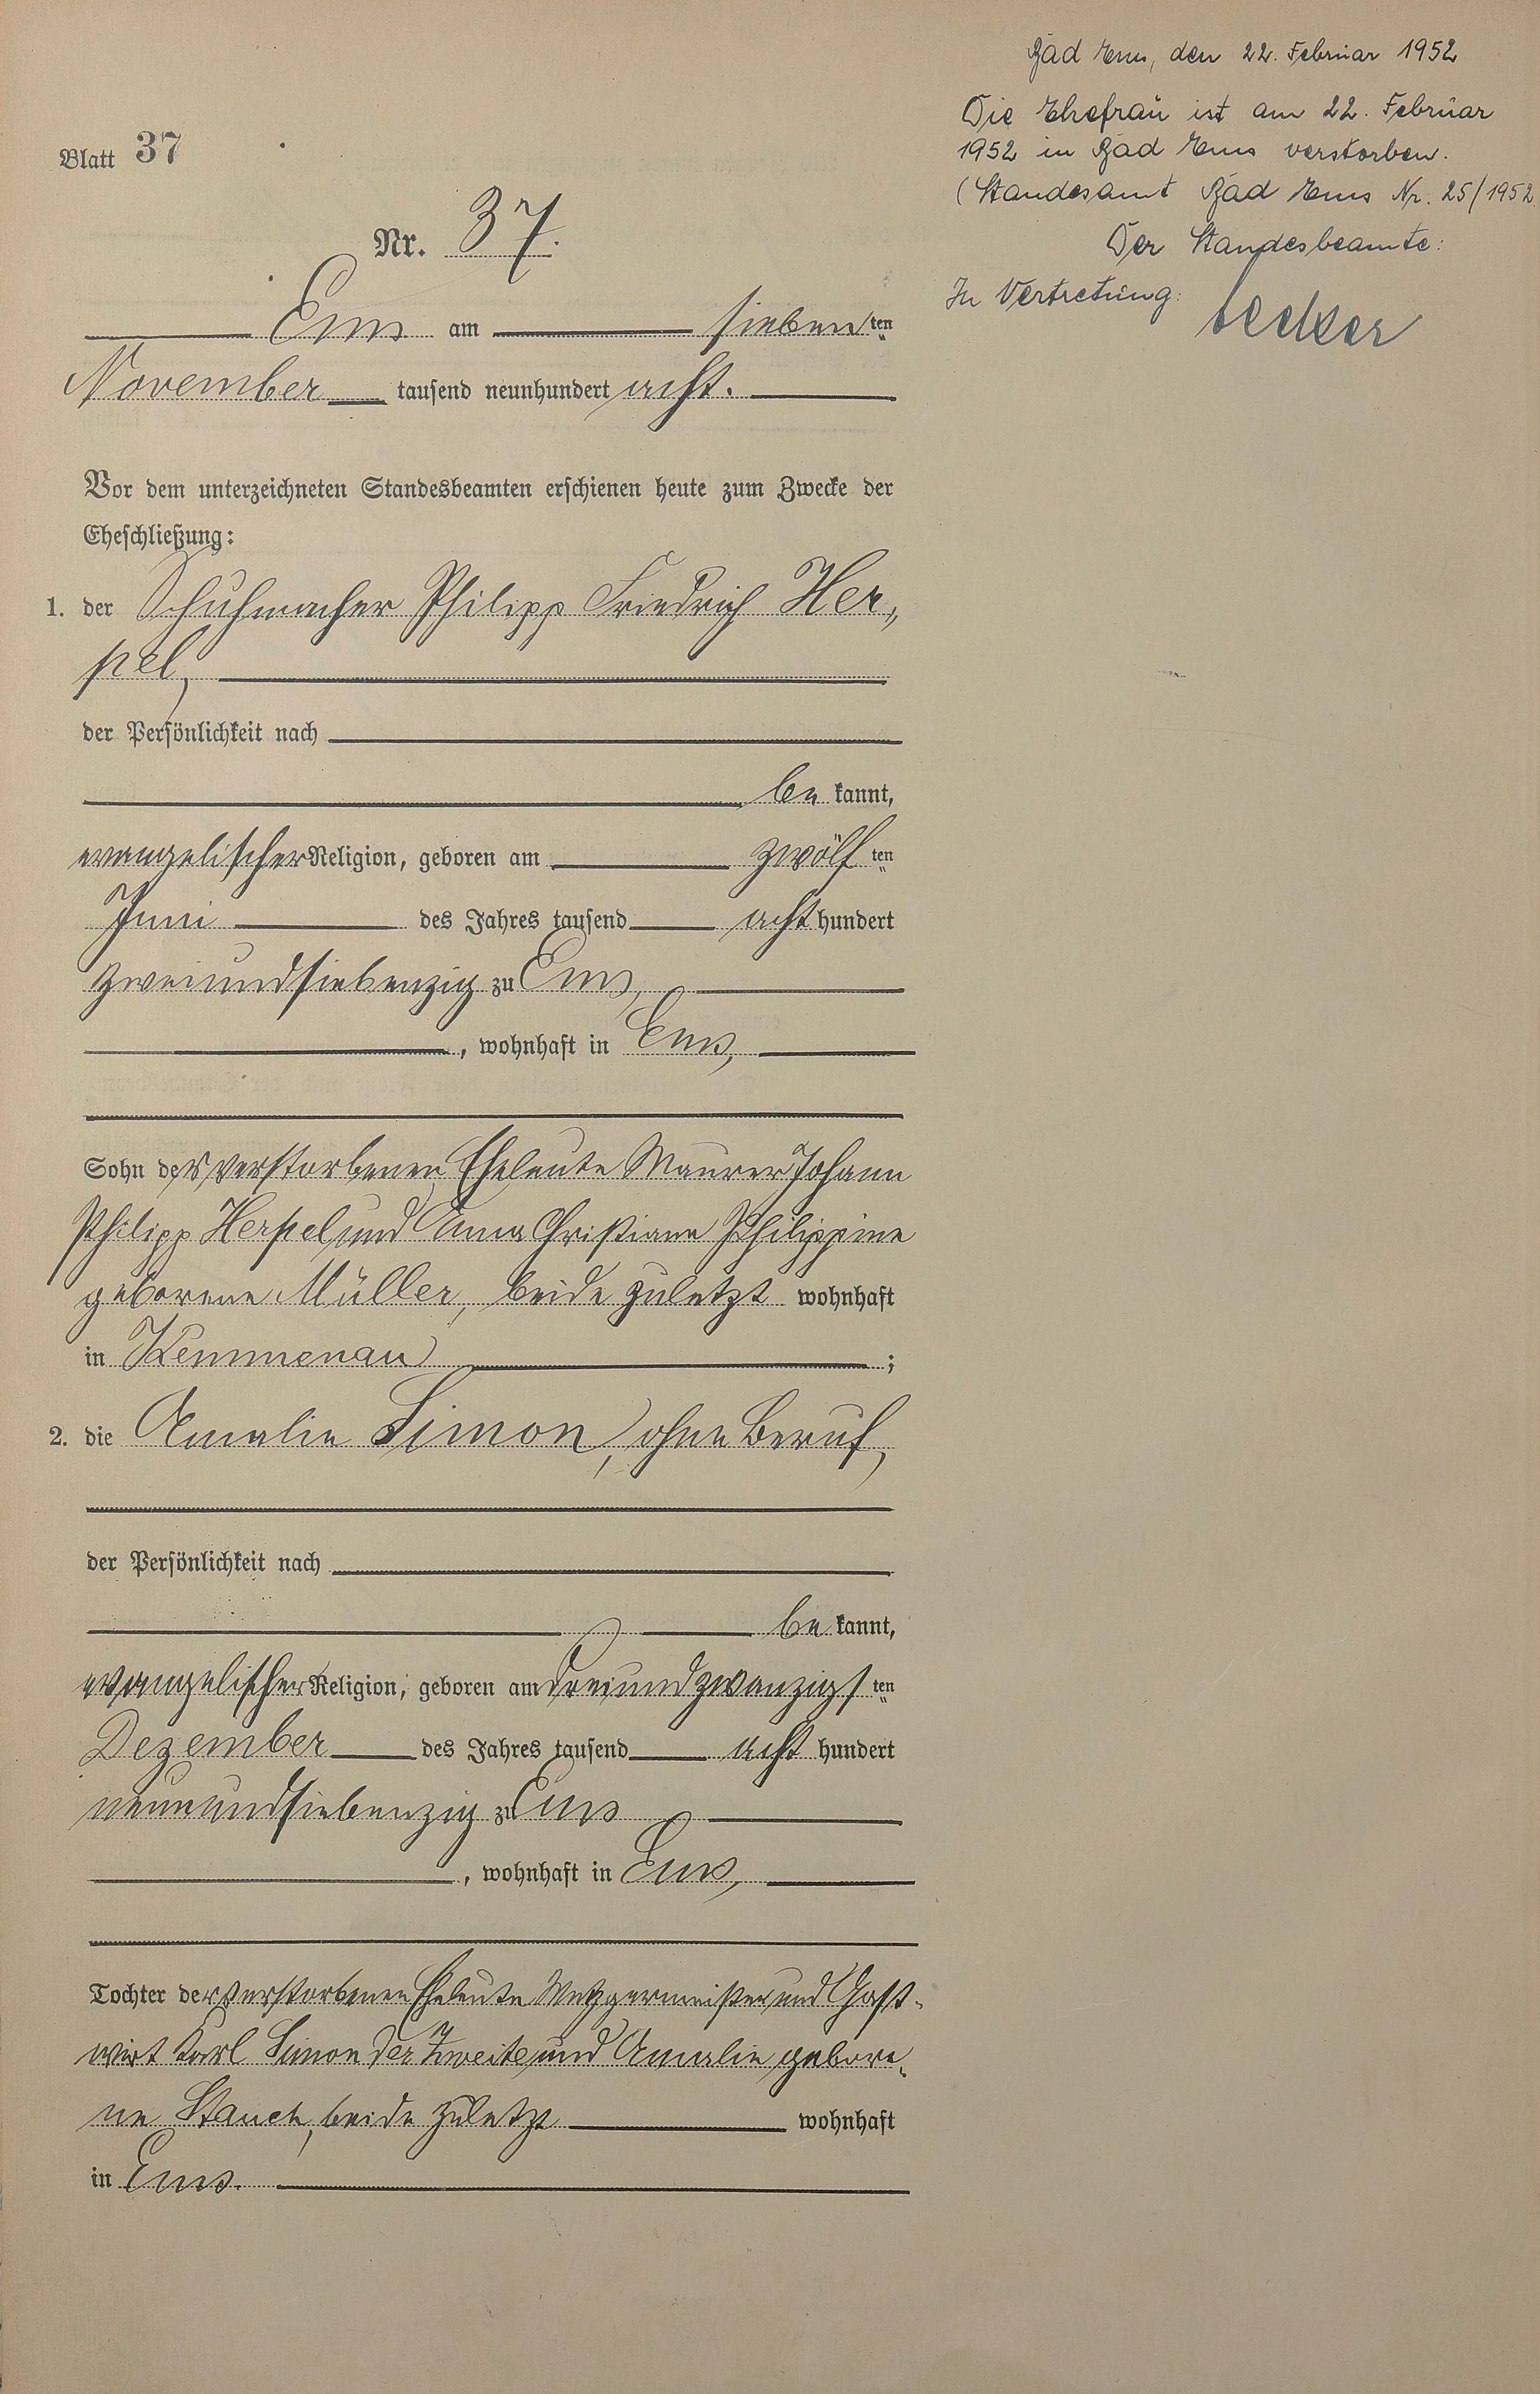 Blatt 37
Nr. 37.
Ems am siebenten
November tausend neunhundert acht.
Vor dem unterzeichneten Standesbeamten erschienen heute zum Zwecke der
Eheschließung:
1. der Schuhmacher Philipp Friedrich Her,
pel,
der Persönlichkeit nach
be kannt,
evangelischer Religion, geboren am zwölften
Juni des Jahres tausend acht hundert
zweiundsiebenzig zu Ems,
, wohnhaft in Ems,
Sohn der verstorbenen Eheleute Maurer Johann
Philipp Herpel und Anna Christiane Philippine
geborene Müller, beide zuletzt wohnhaft
in Kemmenau ;
2. die Amalie Simon, ohne Beruf,
der Persönlichkeit nach
be kannt,
evangelischer Religion, geboren am dreiundzwanzigsten
Dezember des Jahres tausend acht hundert
neunundsiebenzig zu Ems
, wohnhaft in Ems,
Tochter der verstorbenen Eheleute Metzgermeister und Gast-
wirt Karl Simon der Zweite und Amalie gebore-
ne Stauch, beide zuletzt wohnhaft
in Ems.
Bad Ems, den 22. Februar 1952
Die Ehefrau ist am 22. Februar
1952 in Bad Ems verstorben.
(Standesamt Bad Ems Nr. 25/1952
Der Standesbeamte:
In Vertretung: